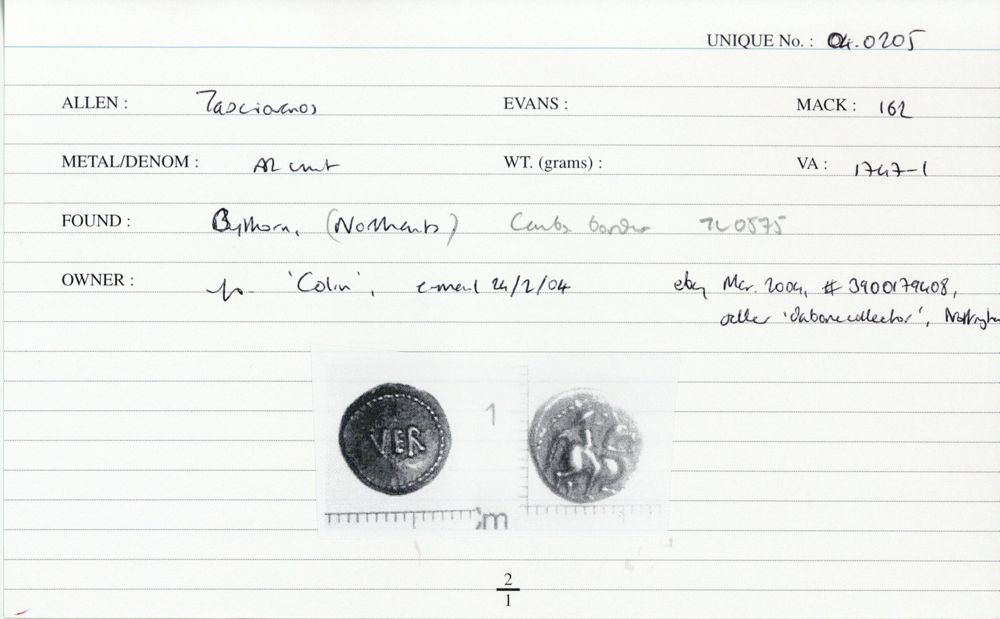 UNIQUE No. : 04.0205
ALLEN : Tasciovanos EVANS : MACK : 162
METAL/DENOM : AR unit WT. (grams) : VA : 1747-1
FOUND : Bythorn, (Northants) Cambs border TL0575
OWNER : 'Colin', e-mail 24/2/04 ebay Mar. 2004, # 3900179408,
seller 'dabonecollector', Nottingha
VER 1
cm
2
1